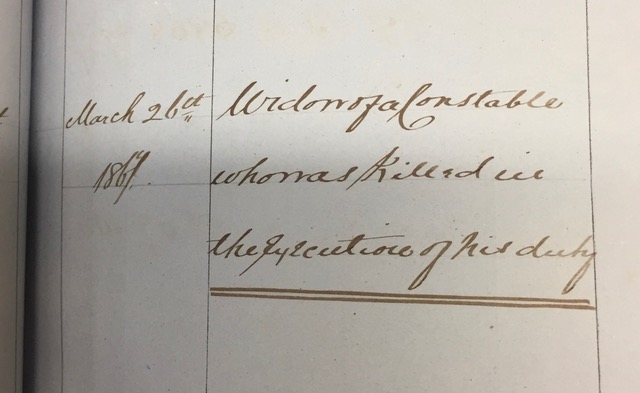 March 26th Widow of a Constable
1867. who was Killed in
the Execution of his duty